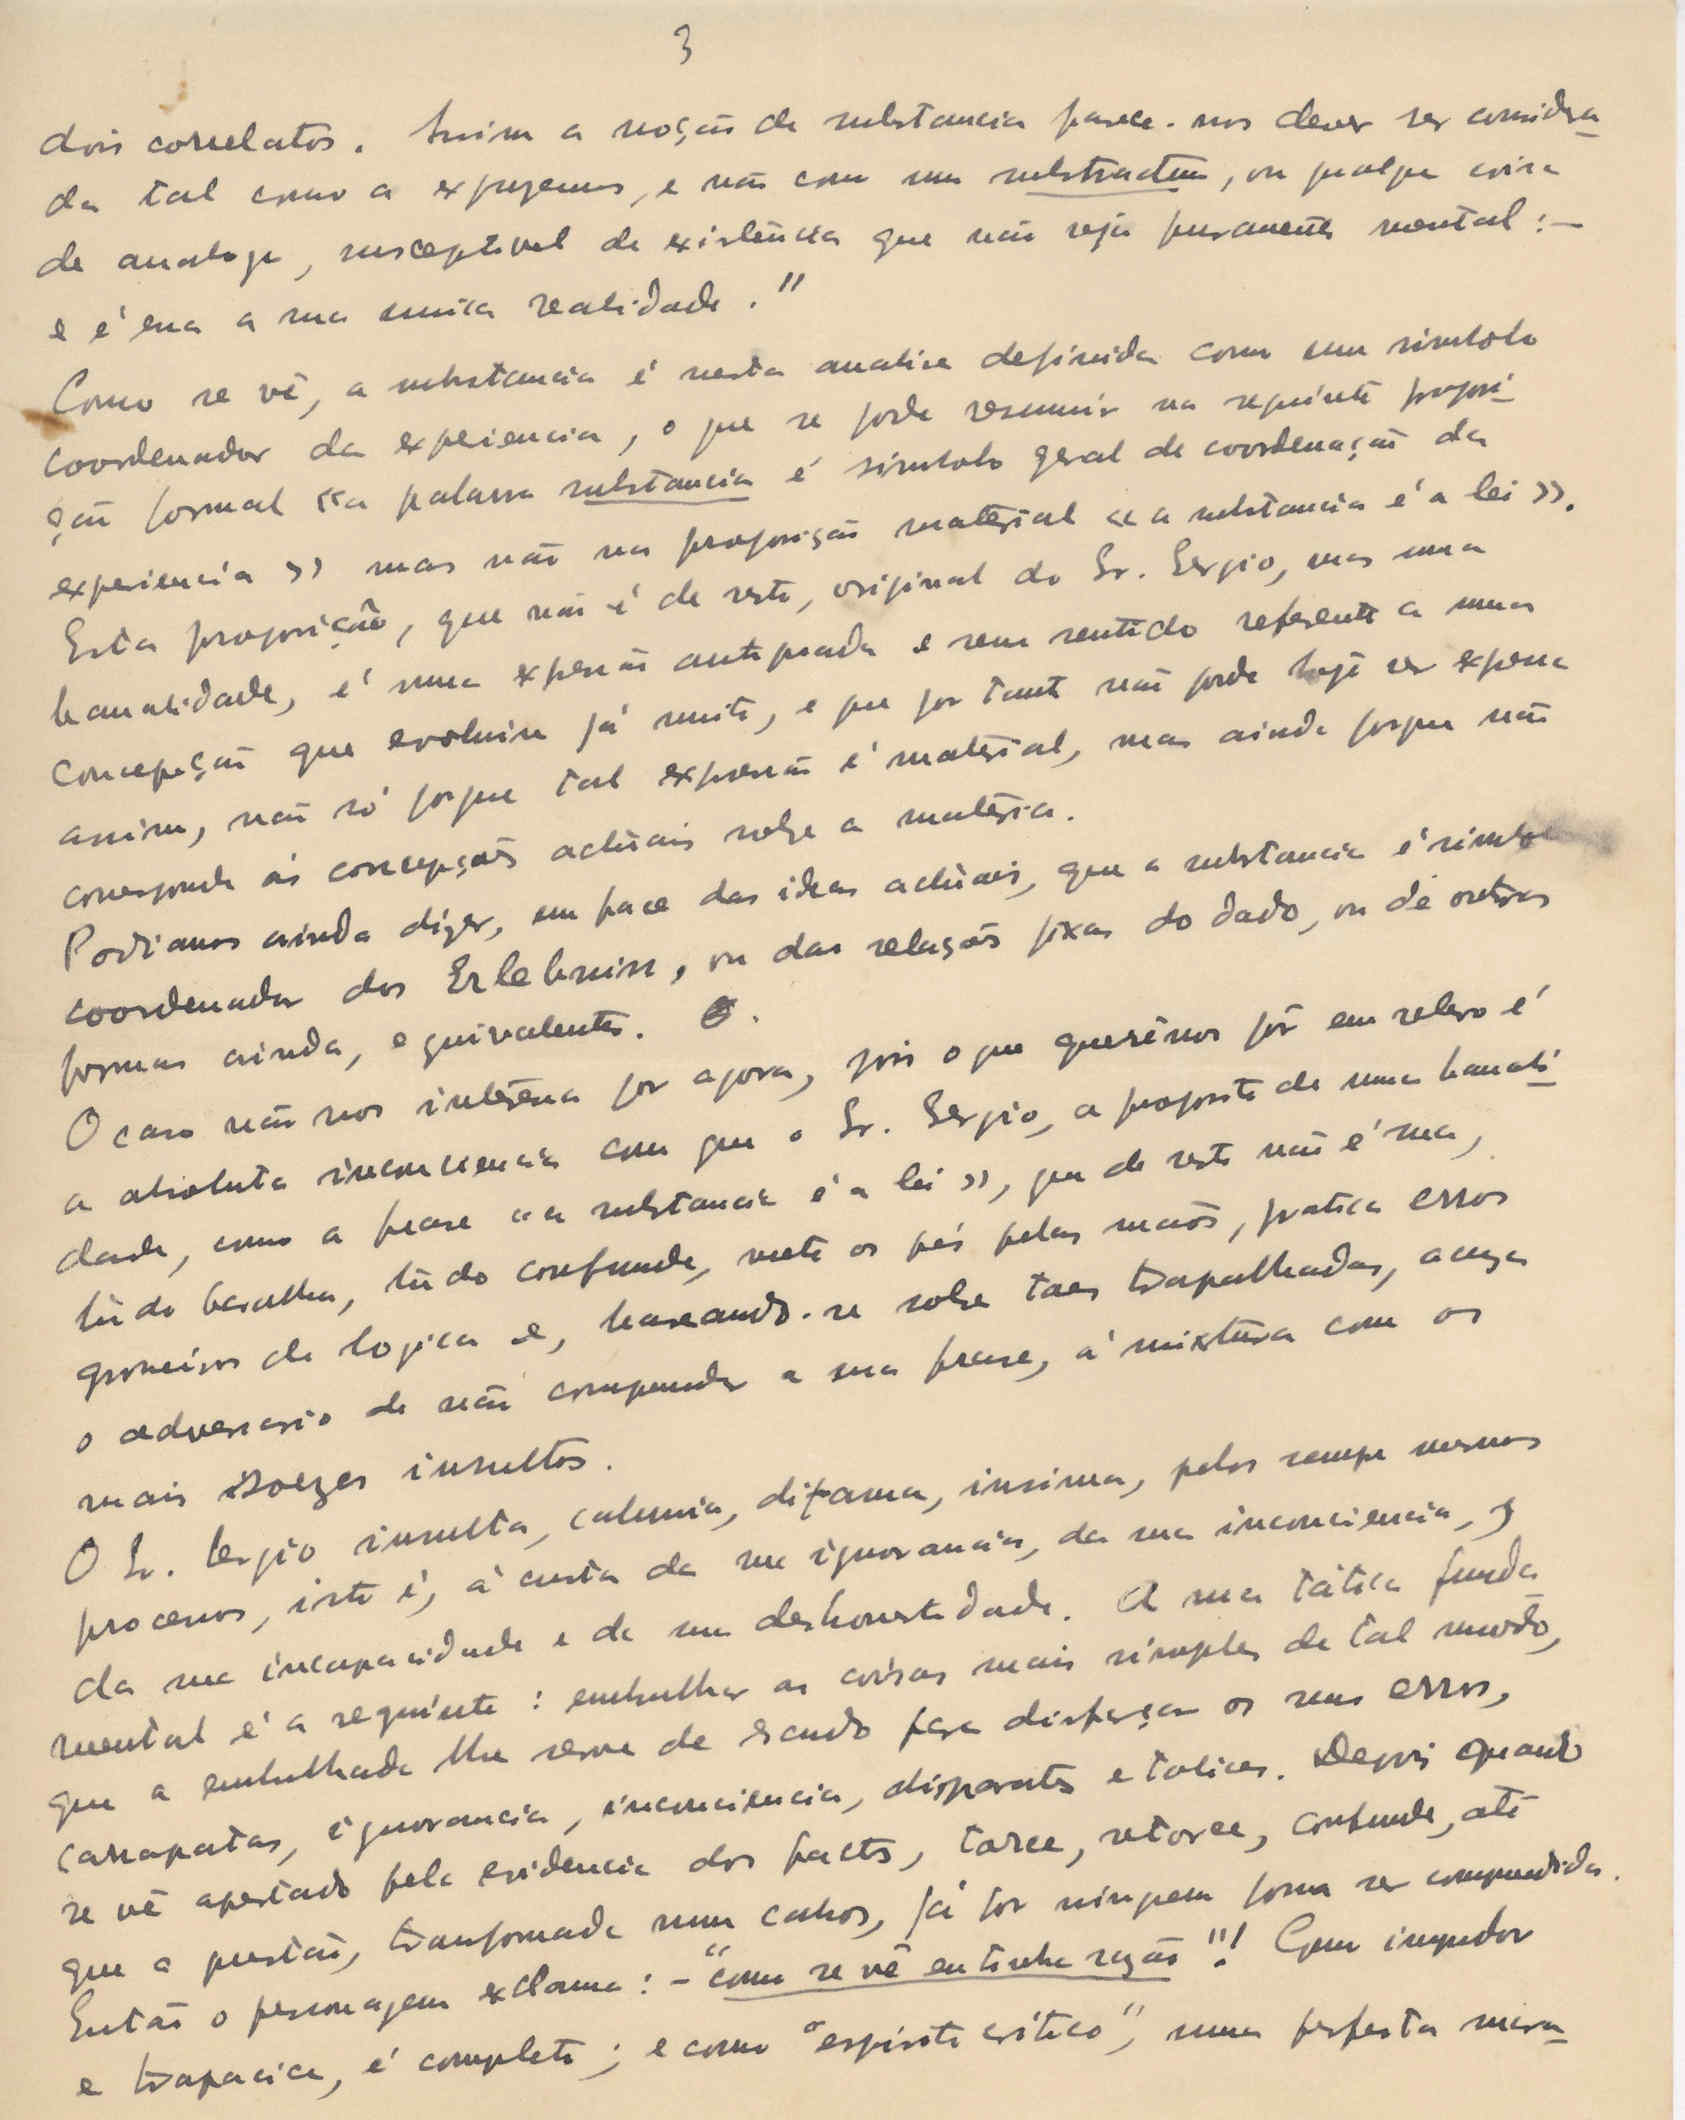 3
dois correlatos. Assim a noção de substancia parece-nos dever ser considera-
da tal como a expuzemos, e não como um substractum, ou qualquer coisa
de analogo, susceptivel de existência que não seja puramente mental: —
e é essa a sua unica realidade."
Como se vê, a substancia é nesta analise definida como um simbolo
coordenador da experiencia, o que se pode resumir na seguinte proposi-
ção formal «a palavra substancia é simbolo geral de coordenação da
experiencia» mas não na proposição material «a substancia é a lei».
Esta proposição, que não é de resto, original do Sr. Sergio, mas uma
banalidade, é uma expressão antiquada e sem sentido referente a uma
concepção que evoluiu já muito, e que por tanto não pode hoje ser expressa
assim, não só porque tal expressão é material, mas ainda porque não
corresponde ás concepções actuais sobre a matéria.
Podiamos ainda dizer, em face das ideas actuais, que a substancia é simbolo
coordenador dos Erlebniss, ou das relações fixas do dado, ou de outras
formas ainda, equivalentes.
O caso não nos interessa por agora, pois o que querêmos pôr em relevo é
a absoluta inconsciencia com que o Sr. Sergio, a proposito de uma banali-
dade, como a frase «a substancia é a lei», que de resto não é sua,
tudo baralha, tudo confunde, mete os pés pelas mãos, pratica erros
grosseiros de logica e, baseando-se sobre taes trapalhadas, acusa
o adversario de não compreender a sua frase, á mixtura com os
mais soezes insultos.
O Sr. Sergio insulta, calunia, difama, insinua, pelos sempre mesmos
processos, isto é, á custa da sua ignorancia, da sua inconciencia,
da sua incapacidade e da sua deshonestidade. A sua tática funda-
mental é a seguinte: embrulhar as coisas mais simples de tal modo,
que a embrulhada lhe serve de escudo para disfarçar os seus erros,
carrapatas, ignorancia, inconciencia, disparates e tolices. Depois quando
se vê apertado pela evidencia dos factos, torce, retorce, confunde, até
que a questão, transformada num cahos, já por ninguem possa ser compreendida.
Então o personagem exclama: — "como se vê eu tinha razão"! O seu impudor
e trapacice, é completo; e como "espirito critico", numa perfeita mera-